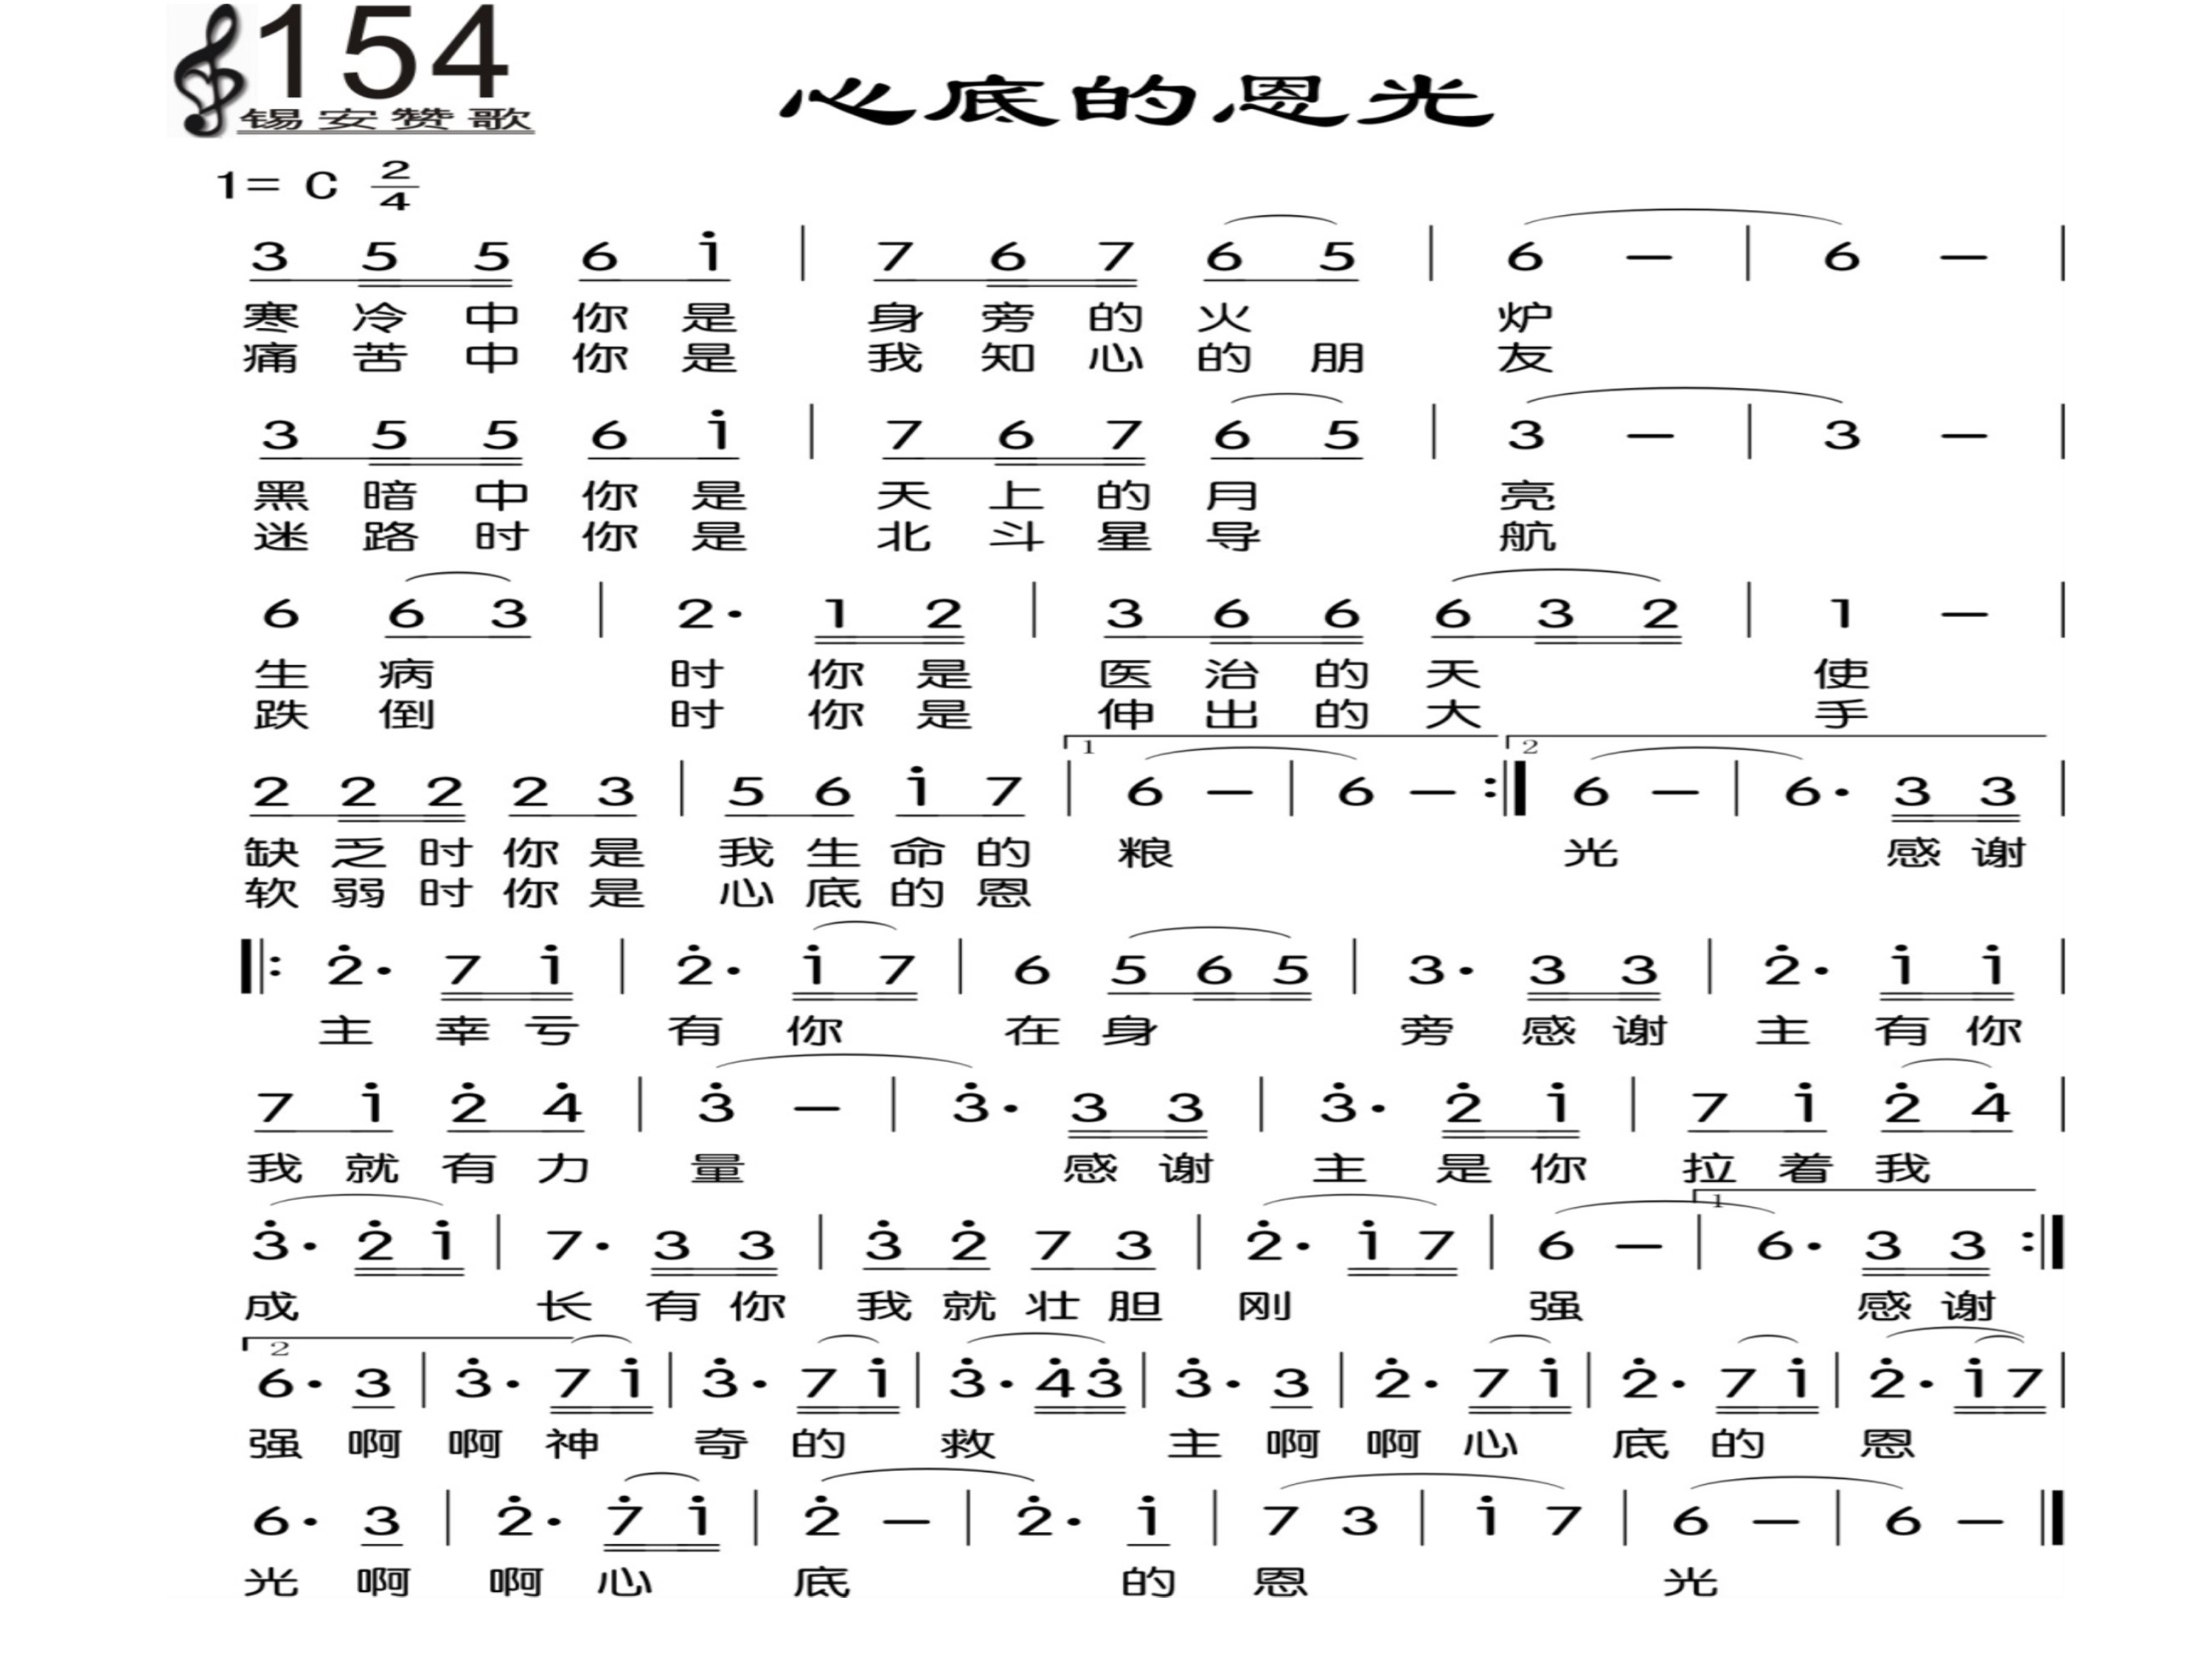 154
锡安赞歌
心底的恩光
1= C 2/4
3 5 5 6 i | 7 6 7 6 5 | 6 — | 6 — |
寒冷中你是 身旁的火 炉
痛苦中你是 我知心的朋 友
3 5 5 6 i | 7 6 7 6 5 | 3 — | 3 — |
黑暗中你是 天上的月 亮
迷路时你是 北斗星导 航
6 6 3 | 2· 1 2 | 3 6 6 6 3 2 | 1 — |
生病 时你是 医治的天 使
跌倒 时你是 伸出的大 手
1 2
2 2 2 2 3 | 5 6 i 7 | 6 — | 6 — :‖ 6 — | 6· 3 3 |
缺乏时你是 我生命的 粮 光 感谢
软弱时你是 心底的恩
‖: 2̇· 7 i | 2̇· i 7 | 6 5 6 5 | 3· 3 3 | 2̇· i i |
主 幸亏 有 你 在身 旁 感谢 主 有你
7 i 2̇ 4̇ | 3̇ — | 3̇· 3 3 | 3̇· 2̇ i | 7 i 2̇ 4̇ |
我就有力 量 感谢 主 是你 拉着我
1
3̇· 2̇ i | 7· 3 3 | 3̇ 2̇ 7 3 | 2̇· i 7 | 6 — | 6· 3 3 :‖
成 长 有你 我就壮胆 刚 强 感谢
2
6· 3 | 3̇· 7 i | 3̇· 7 i | 3̇· 4̇ 3̇ | 3̇· 3 | 2̇· 7 i | 2̇· 7 i | 2̇· i 7 |
强 啊 啊 神 奇 的 救 主 啊 啊 心 底 的 恩
6· 3 | 2̇· 7̇ i | 2̇ — | 2̇· i | 7 3 | i 7 | 6 — | 6 — ‖
光 啊 啊 心 底 的 恩 光